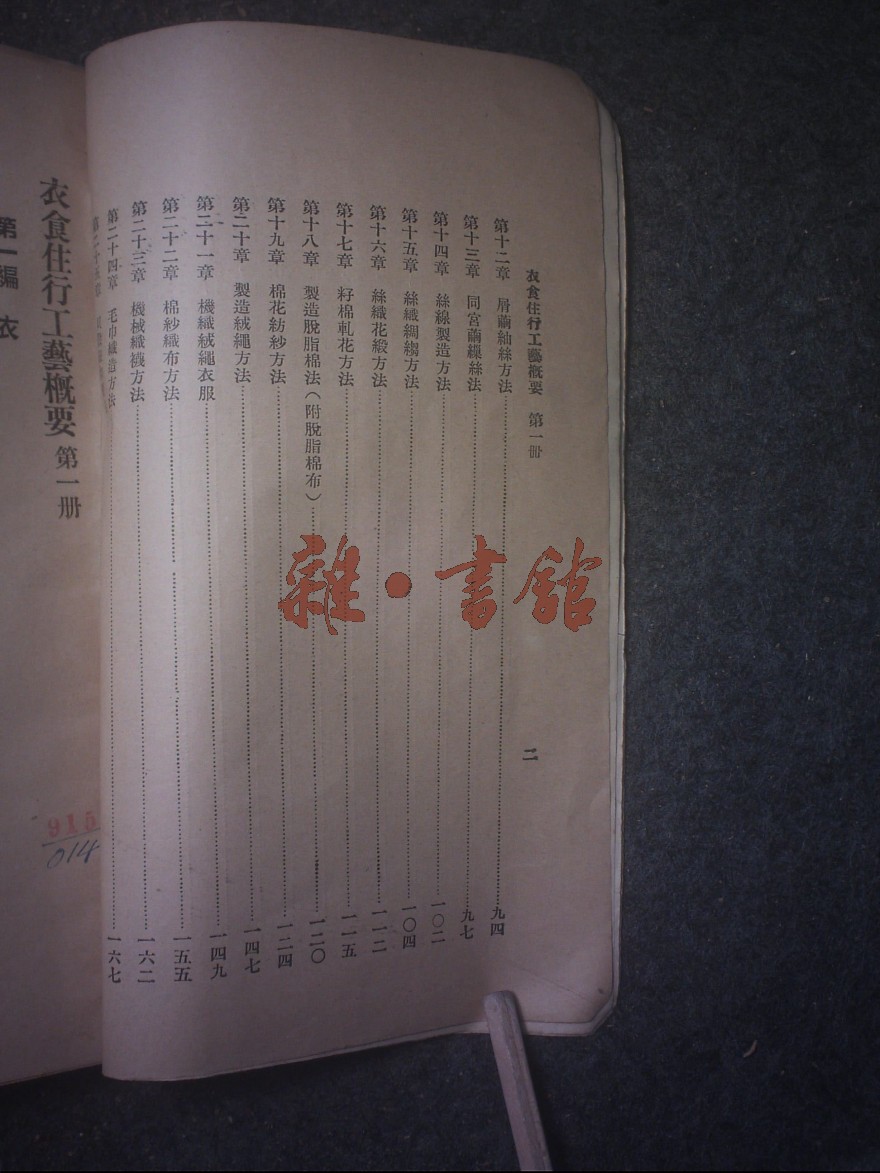 衣食住行工藝概要 第一冊
二
第十二章 屑繭紬絲方法 九四
第十三章 同宮繭繅絲法 九七
第十四章 絲線製造方法 一〇二
第十五章 絲織綢縐方法 一〇四
第十六章 絲織花緞方法 一一二
第十七章 籽棉軋花方法 一一五
第十八章 製造脫脂棉法(附脫脂棉布) 一二〇
第十九章 棉花紡紗方法 一二四
第二十章 製造絨繩方法 一四七
第二十一章 機織絨繩衣服 一四九
第二十二章 棉紗織布方法 一五五
第二十三章 機械織襪方法 一六二
第二十四章 毛巾織造方法 一六七
衣食住行工藝概要 第一册
第一編 衣
915
014
雜·書館